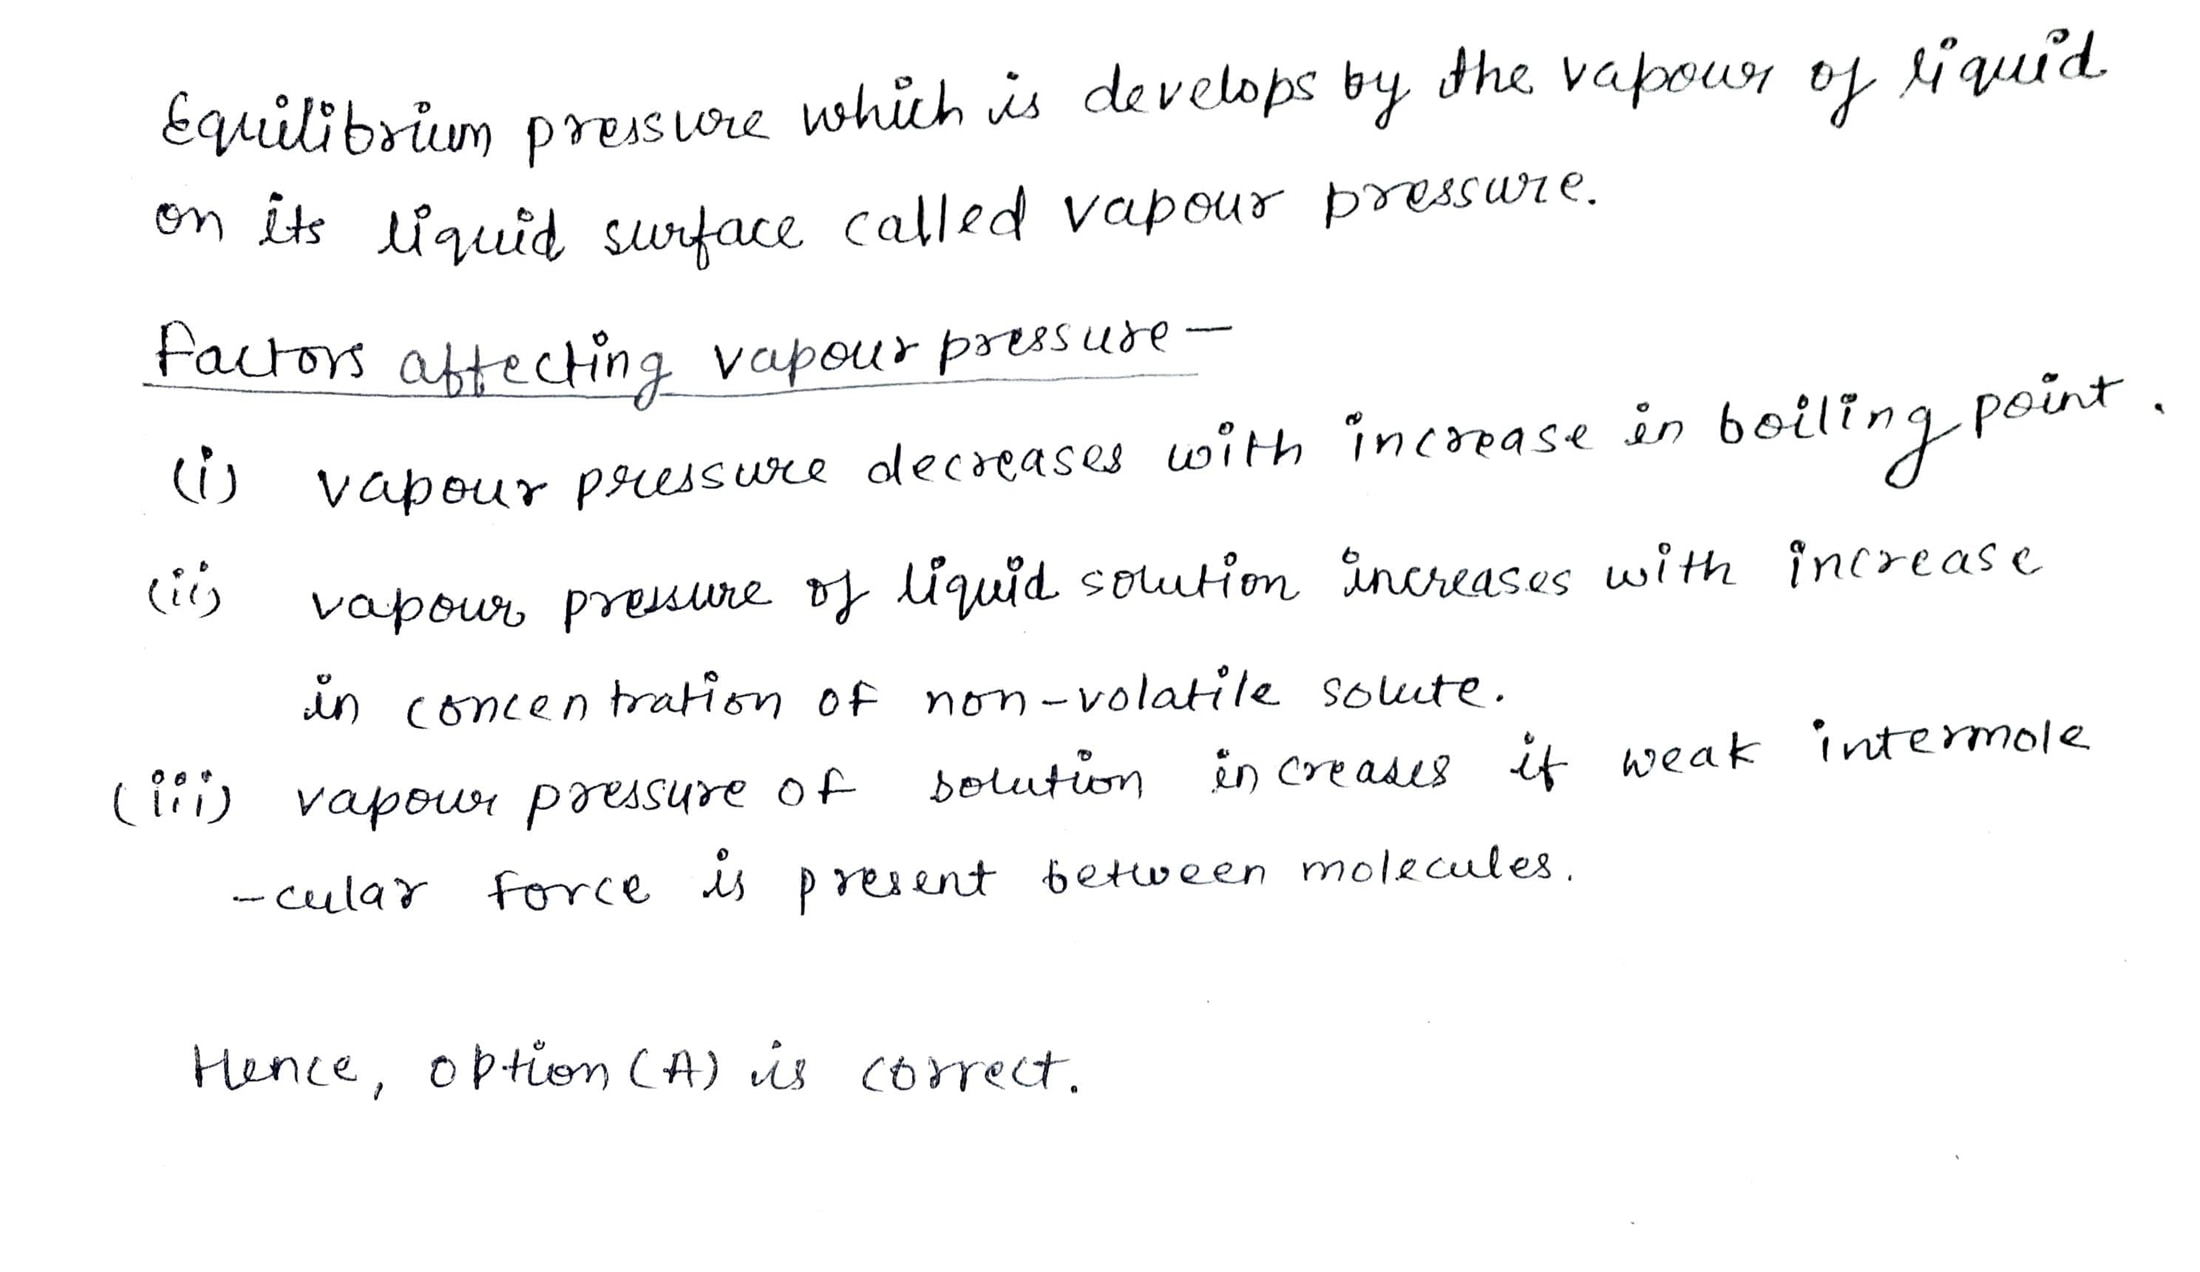 Equilibrium pressure which is develops by the vapour of liquid
on its liquid surface called vapour pressure.
Factors affecting vapour pressure—
(i) vapour pressure decreases with increase in boiling point.
(ii) vapour pressure of liquid solution increases with increase
in concentration of non-volatile solute.
(iii) vapour pressure of solution increases if weak intermole
-cular force is present between molecules.
Hence, option (A) is correct.